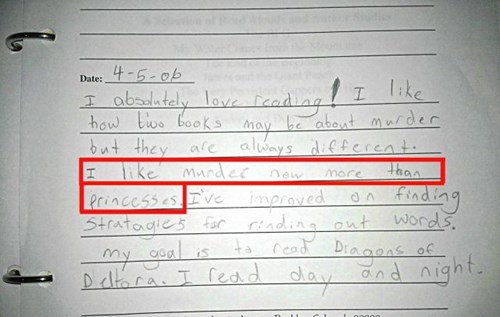 Date: 4-5-06
I absolutely love reading! I like
how two books may be about murder
but they are always different.
I like murder now more than
princesses. I've improved on finding
Stratagies for finding out words.
my goal is to read Dragons of
Deltora. I read day and night.